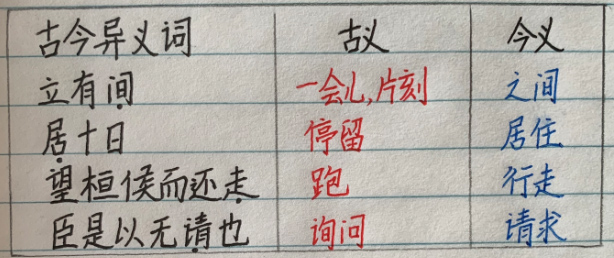 古今异义词 古义 今义
立有间 一会儿,片刻 之间
居十日 停留 居住
望桓侯而还走 跑 行走
臣是以无请也 询问 请求